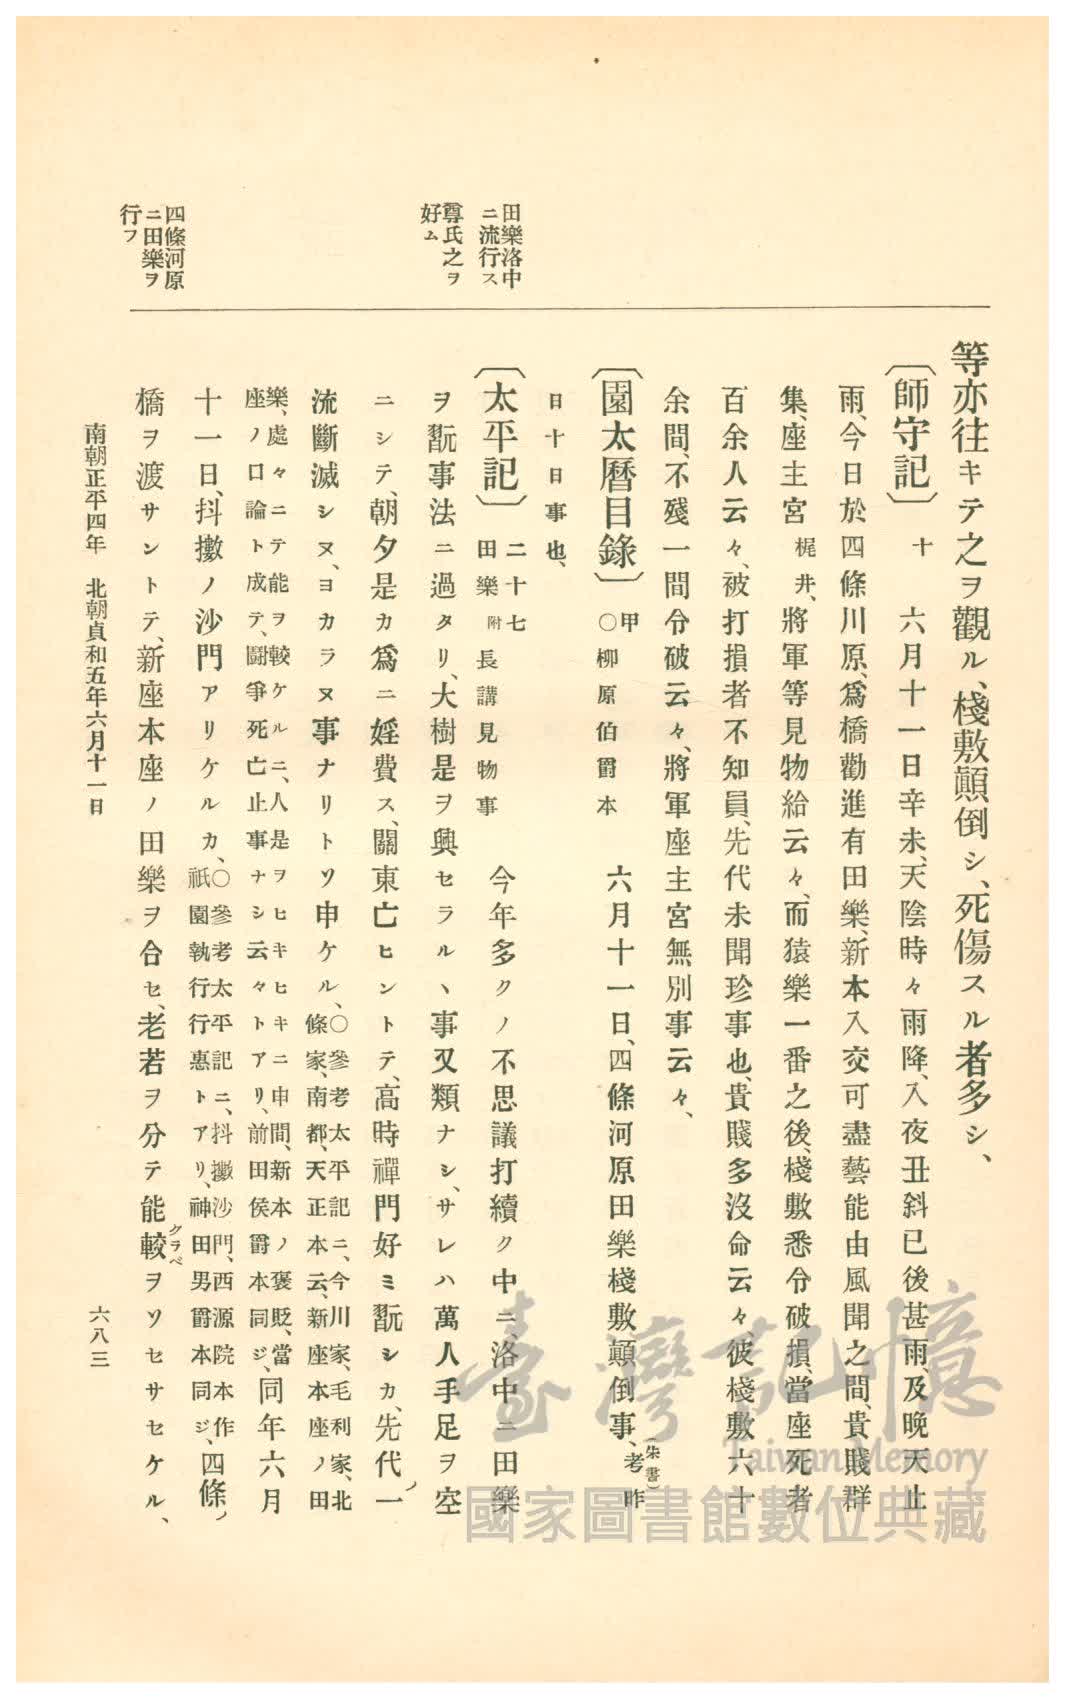 等亦往キテ之ヲ觀ル、棧敷顚倒シ、死傷スル者多シ、
〔師守記〕 十 六月十一日辛未、天陰時々雨降、入夜丑斜已後甚雨、及晩天止
雨、今日於四條川原、爲橋勸進有田樂、新本入交可盡藝能由風聞之間、貴賤群
集、座主宮 梶井、將軍等見物給云々、而猿樂一番之後、棧敷悉令破損、當座死者
百余人云々、被打損者不知員、先代未聞珍事也、貴賤多沒命云々、彼棧敷六十
余間、不殘一間令破云々、將軍座主宮無別事云々、
〔園太曆目錄〕 甲 ○柳原伯爵本 六月十一日、四條河原田樂棧敷顚倒事、(朱書)考昨
日十日事也、
〔太平記〕 二十七 田樂附長講見物事 今年多クノ不思議打續ク中ニ、洛中ニ田樂
ヲ翫事法ニ過タリ、大樹是ヲ興セラルヽ事又類ナシ、サレハ萬人手足ヲ空
ニシテ、朝夕是カ爲ニ婬費ス、關東亡ヒントテ、高時禪門好ミ翫シカ、先代一ノ
流斷滅シヌ、ヨカラヌ事ナリトソ申ケル、○參考太平記ニ、今川家、毛利家、北條家、南都、天正本云、新座本座ノ田
樂、處々ニテ能ヲ較ケルニ、人是ヲヒキヒキニ申間、新本ノ褒貶、當座ノ口論ト成テ、鬪爭死亡止事ナシ云々トアリ、前田侯爵本同ジ、同年六月
十一日、抖擻ノ沙門アリケルカ、○參考太平記ニ、抖擻沙門、西源院本作祇園執行行惠トアリ、神田男爵本同ジ、四條ノ
橋ヲ渡サントテ、新座本座ノ田樂ヲ合セ、老若ヲ分テ能較クラベヲソセサセケル、
田樂洛中
ニ流行ス
尊氏之ヲ
好ム
四條河原
ニ田樂ヲ
行フ
南朝正平四年 北朝貞和五年六月十一日
六八三
臺灣記憶
Taiwan Memory
國家圖書館數位典藏